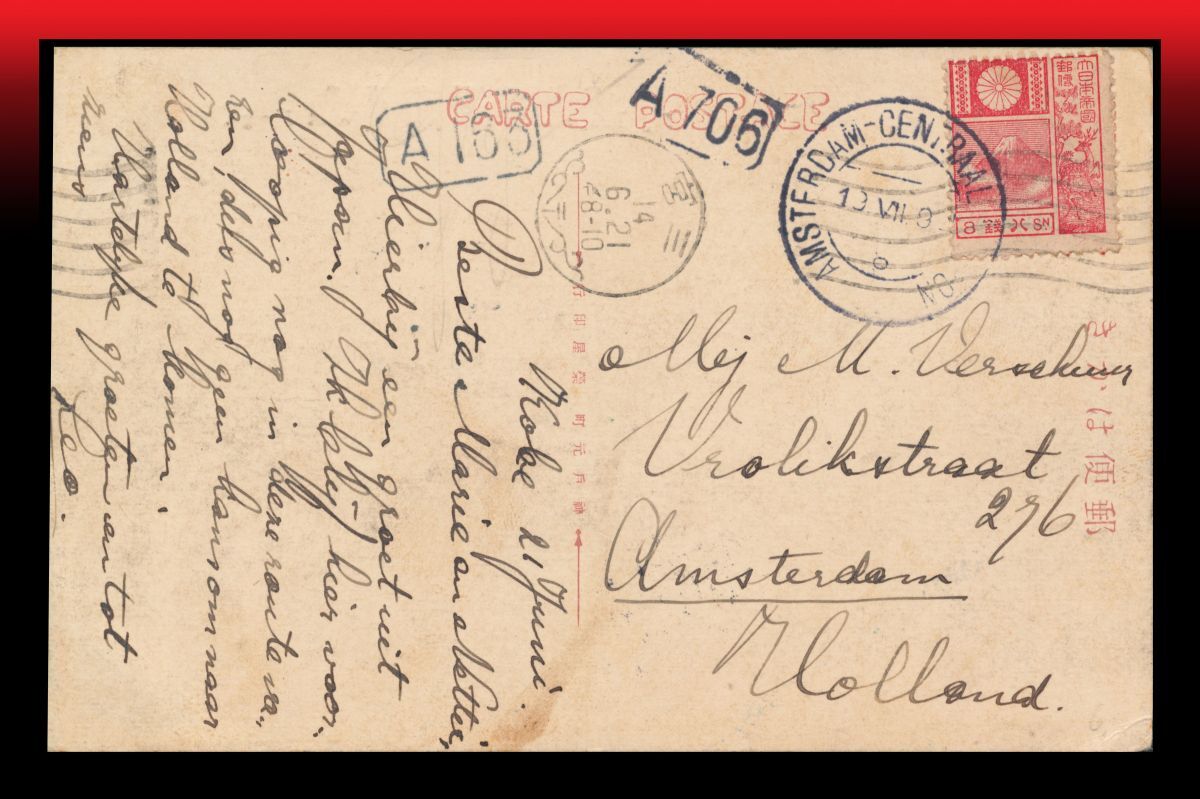 CARTE POSTALE
A 166
A 706
AMSTERDAM-CENTRAAL
19 VII
8
大日本帝國
郵便
8 SN 銭八
三宮
14
6.21
Kobe 21 Juni.
Beste Marie en
Hierbij een groet uit
Japan. Ik blijf hier voor-
loopig nog in deze route va-
ren, dus nog geen kans om naar
Holland te komen.
Hartelijke groeten en tot
ziens
Leo.
Mej M. Verschuur
Vrolikstraat
276
Amsterdam
Holland.
きかは便郵
神戸元町 榮屋印行